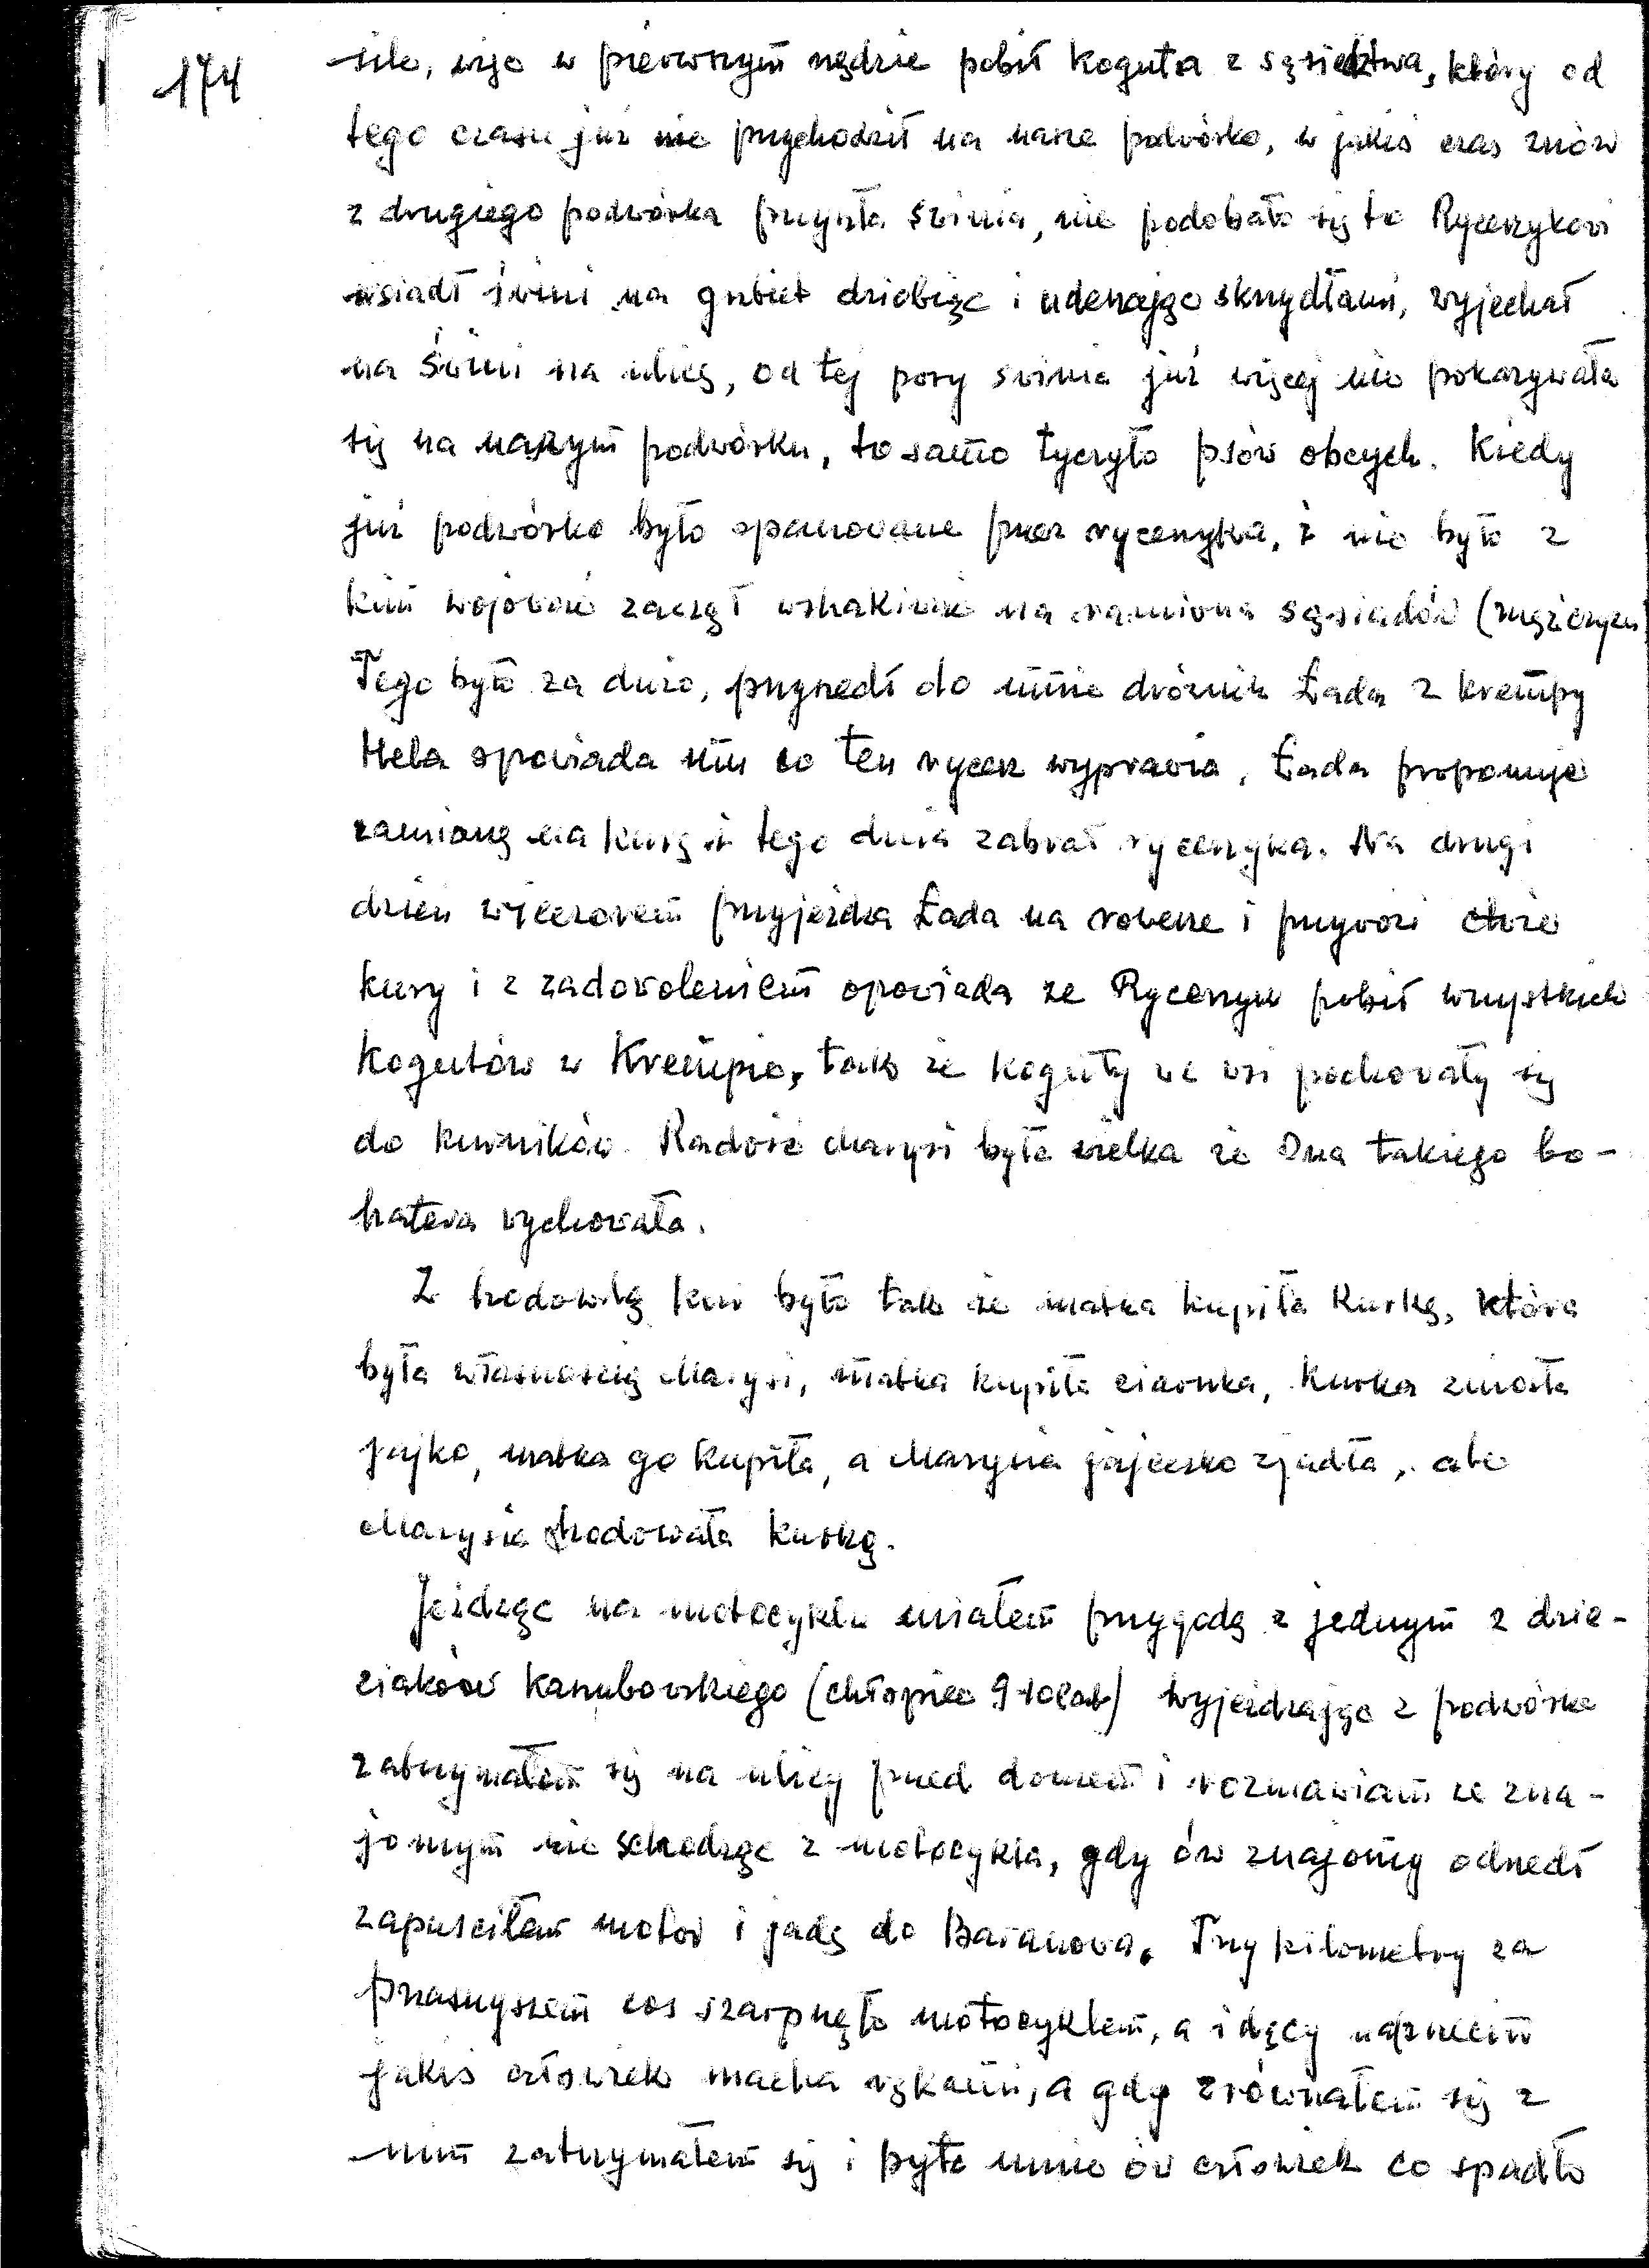 174
siłę, więc w pierwszym rzędzie pobił koguta z sąsiedztwa, który od
tego czasu już nie przychodził na nasze podwórko, w jakiś czas znów
z drugiego podwórka przyszła świnia, nie podobało się to Rycerzykowi
wsiadł świni na grzbiet dziobiąc i uderzając skrzydłami, wyjechał
na świni na ulicę, od tej pory świnia już więcej nie pokazywała
się na naszym podwórku, to samo tyczyło psów obcych. Kiedy
już podwórko było opanowane przez rycerzyka, i nie było z
kim wojować zaczął wskakiwać na ramiona sąsiadów (mężczyzn)
Tego było za dużo, przyszedł do mnie dróżnik Łada z Krempy
Hela opowiada mu co ten rycerz wyprawia, Łada proponuje
zamianę na kurę i tego dnia zabrał rycerzyka. Na drugi
dzień wieczorem przyjeżdża Łada na rowerze i przywozi dwie
kury i z zadowoleniem opowiada że Rycerzyk pobił wszystkich
kogutów w Krempie, tak że koguty we wsi pochowały się
do kurników. Radość Marysi była wielka że Ona takiego bo-
hatera wychowała.
Z hodowlą kur było tak że matka kupiła Kurkę, która
była własnością Marysi, matka kupiła ziarnka, Kurka zniosła
jajko, matka go kupiła, a Marysia jajeczko zjadła, ale
Marysia hodowała kurkę.
Jeżdżąc na motocyklu miałem przygodę z jednym z dzie-
ciaków (chłopiec 9-10 lat) wyjeżdżając z podwórka
zatrzymałem się na ulicy przed domem i rozmawiam ze zna-
jomym nie schodząc z motocykla, gdy ów znajomy odszedł
zapuściłem motor i jadę do Baranowa. Trzy kilometry za
Przasnyszem coś szarpnęło motocyklem, a idący naprzeciw
jakiś człowiek macha rękami, a gdy zrównałem się z
nim zatrzymałem się i pyta mnie ów człowiek co spadło